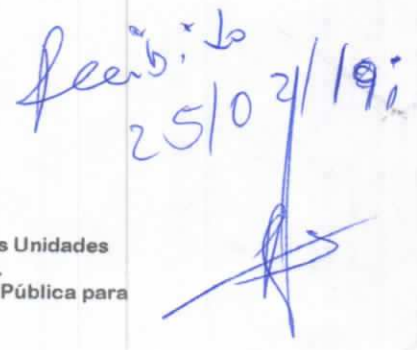 Recibido
25/02/19;
s Unidades
Pública para